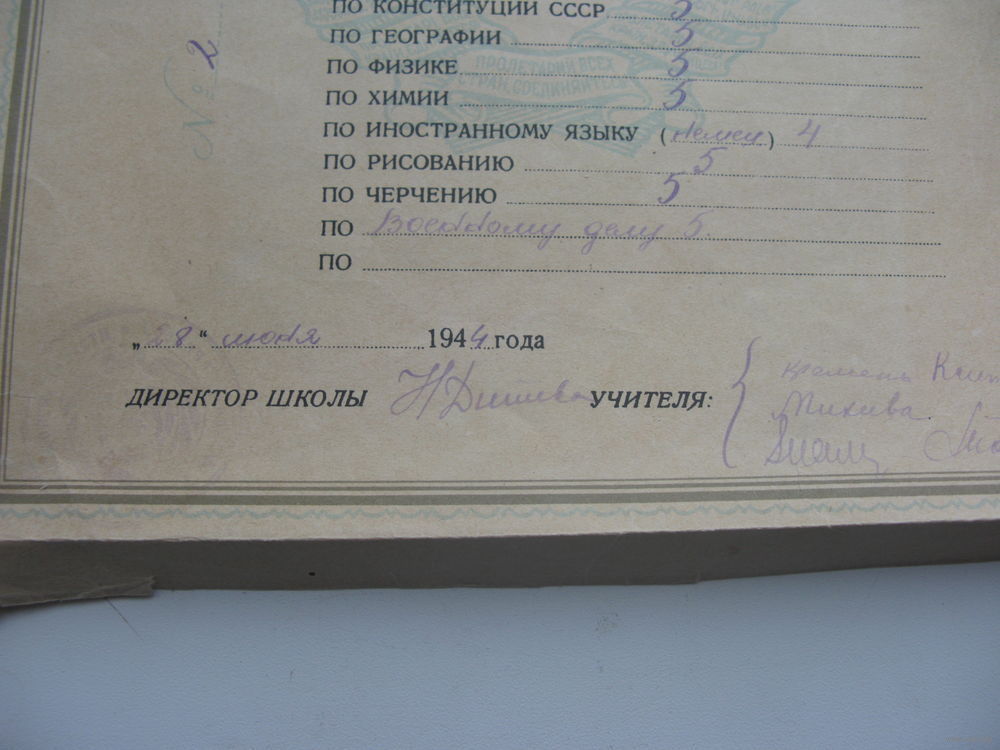 ПО КОНСТИТУЦИИ СССР 5
ПО ГЕОГРАФИИ 5
ПО ФИЗИКЕ 5
ПО ХИМИИ 5
ПО ИНОСТРАННОМУ ЯЗЫКУ (немец) 4
ПО РИСОВАНИЮ 5
ПО ЧЕРЧЕНИЮ 5
ПО Военному делу 5.
ПО
№ 2
ПРОЛЕТАРИИ ВСЕХ
СТРАН, СОЕДИНЯЙТЕСЬ
„28“ июня 1944 года
ДИРЕКТОР ШКОЛЫ УЧИТЕЛЯ: